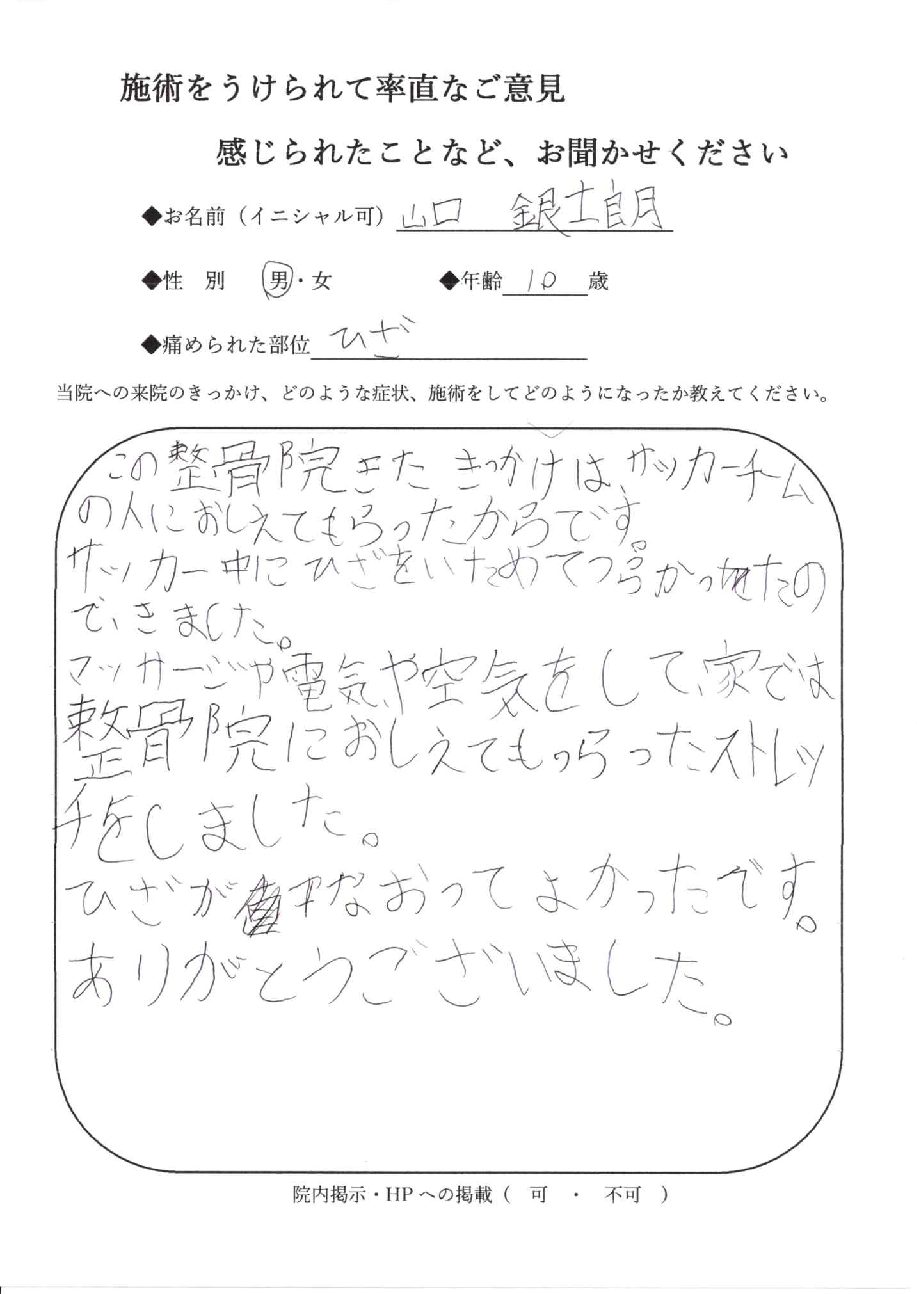 施術をうけられて率直なご意見
感じられたことなど、お聞かせください
◆お名前（イニシャル可）山口 銀士朗
◆性 別 男・女 ◆年齢 10 歳
◆痛められた部位 ひざ
当院への来院のきっかけ、どのような症状、施術をしてどのようになったか教えてください。
この整骨院きたきっかけは、サッカーチーム
の人におしえてもらったからです。
サッカー中にひざをいためてつらかったの
で、きました。
マッサージや電気や空気をして、家では
整骨院におしえてもらったストレッ
チをしました。
ひざがなおってよかったです。
ありがとうございました。
院内掲示・HPへの掲載（ 可 ・ 不可 ）